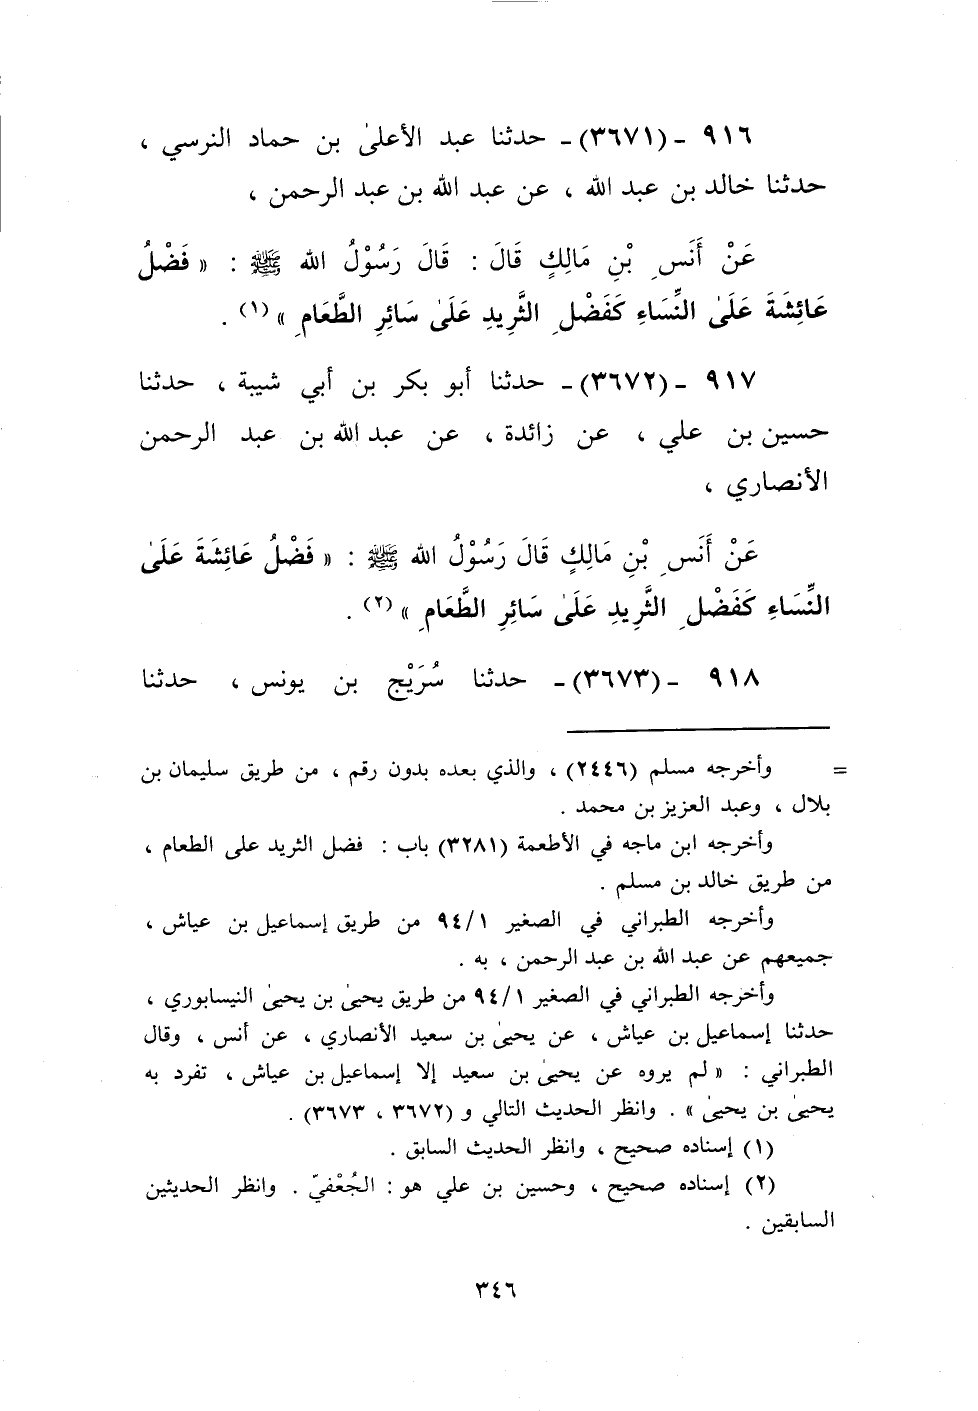 ٩١٦ ـ (٣٦٧١) ـ حدثنا عبد الأعلىٰ بن حماد النرسي ،
حدثنا خالد بن عبد الله ، عن عبد الله بن عبد الرحمن ،
عَنْ أَنَسِ بْنِ مَالِكٍ قَالَ : قَالَ رَسُوْلُ الله ﷺ : « فَضْلُ
عَائِشَةَ عَلَىٰ النِّسَاءِ كَفَضْلِ الثَّرِيدِ عَلَىٰ سَائِرِ الطَّعَامِ » (١) .
٩١٧ ـ (٣٦٧٢) ـ حدثنا أبو بكر بن أبي شيبة ، حدثنا
حسين بن علي ، عن زائدة ، عن عبد الله بن عبد الرحمن
الأنصاري ،
عَنْ أَنَسِ بْنِ مَالِكٍ قَالَ رَسُوْلُ الله ﷺ : « فَضْلُ عَائِشَةَ عَلَىٰ
النِّسَاءِ كَفَضْلِ الثَّرِيدِ عَلَىٰ سَائِرِ الطَّعَامِ » (٢) .
٩١٨ ـ (٣٦٧٣) ـ حدثنا سُرَيْج بن يونس ، حدثنا
= وأخرجه مسلم (٢٤٤٦) ، والذي بعده بدون رقم ، من طريق سليمان بن
بلال ، وعبد العزيز بن محمد .
وأخرجه ابن ماجه في الأطعمة (٣٢٨١) باب : فضل الثريد على الطعام ،
من طريق خالد بن مسلم .
وأخرجه الطبراني في الصغير ٩٤/١ من طريق إسماعيل بن عياش ،
جميعهم عن عبد الله بن عبد الرحمن ، به .
وأخرجه الطبراني في الصغير ٩٤/١ من طريق يحيىٰ بن يحيىٰ النيسابوري ،
حدثنا إسماعيل بن عياش ، عن يحيىٰ بن سعيد الأنصاري ، عن أنس ، وقال
الطبراني : « لم يروه عن يحيىٰ بن سعيد إلا إسماعيل بن عياش ، تفرد به
يحيىٰ بن يحيىٰ » . وانظر الحديث التالي و (٣٦٧٢ ، ٣٦٧٣) .
(١) إسناده صحيح ، وانظر الحديث السابق .
(٢) إسناده صحيح ، وحسين بن علي هو : الجُعْفيّ . وانظر الحديثين
السابقين .
٣٤٦